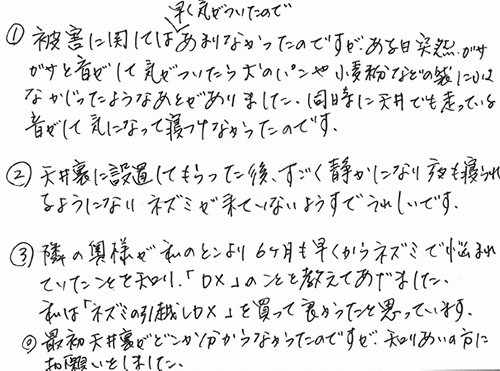 早く気がついたので
① 被害に関してはあまりなかったのですが、ある日突然、ガサ
ガサと音がして気がついたら犬のパンや小麦粉などの袋に
なかじったようなあとがありました、同時に天井でも走っている
音がして気になって寝つけなかったのです。
② 天井裏に設置してもらった後、すごく静かになり夜も寝られ
るようになりネズミが来ていないようすでうれしいです。
③ 隣の奥様が私のとこより6ヶ月も早くからネズミで悩まれ
ていたことを知り、「DX」のことを教えてあげました、
私は「ネズミの引越しDX」を買って良かったと思っています。
◎ 最初天井裏がどこか分からなかったのですが、知りあいの方に
お願いしました。